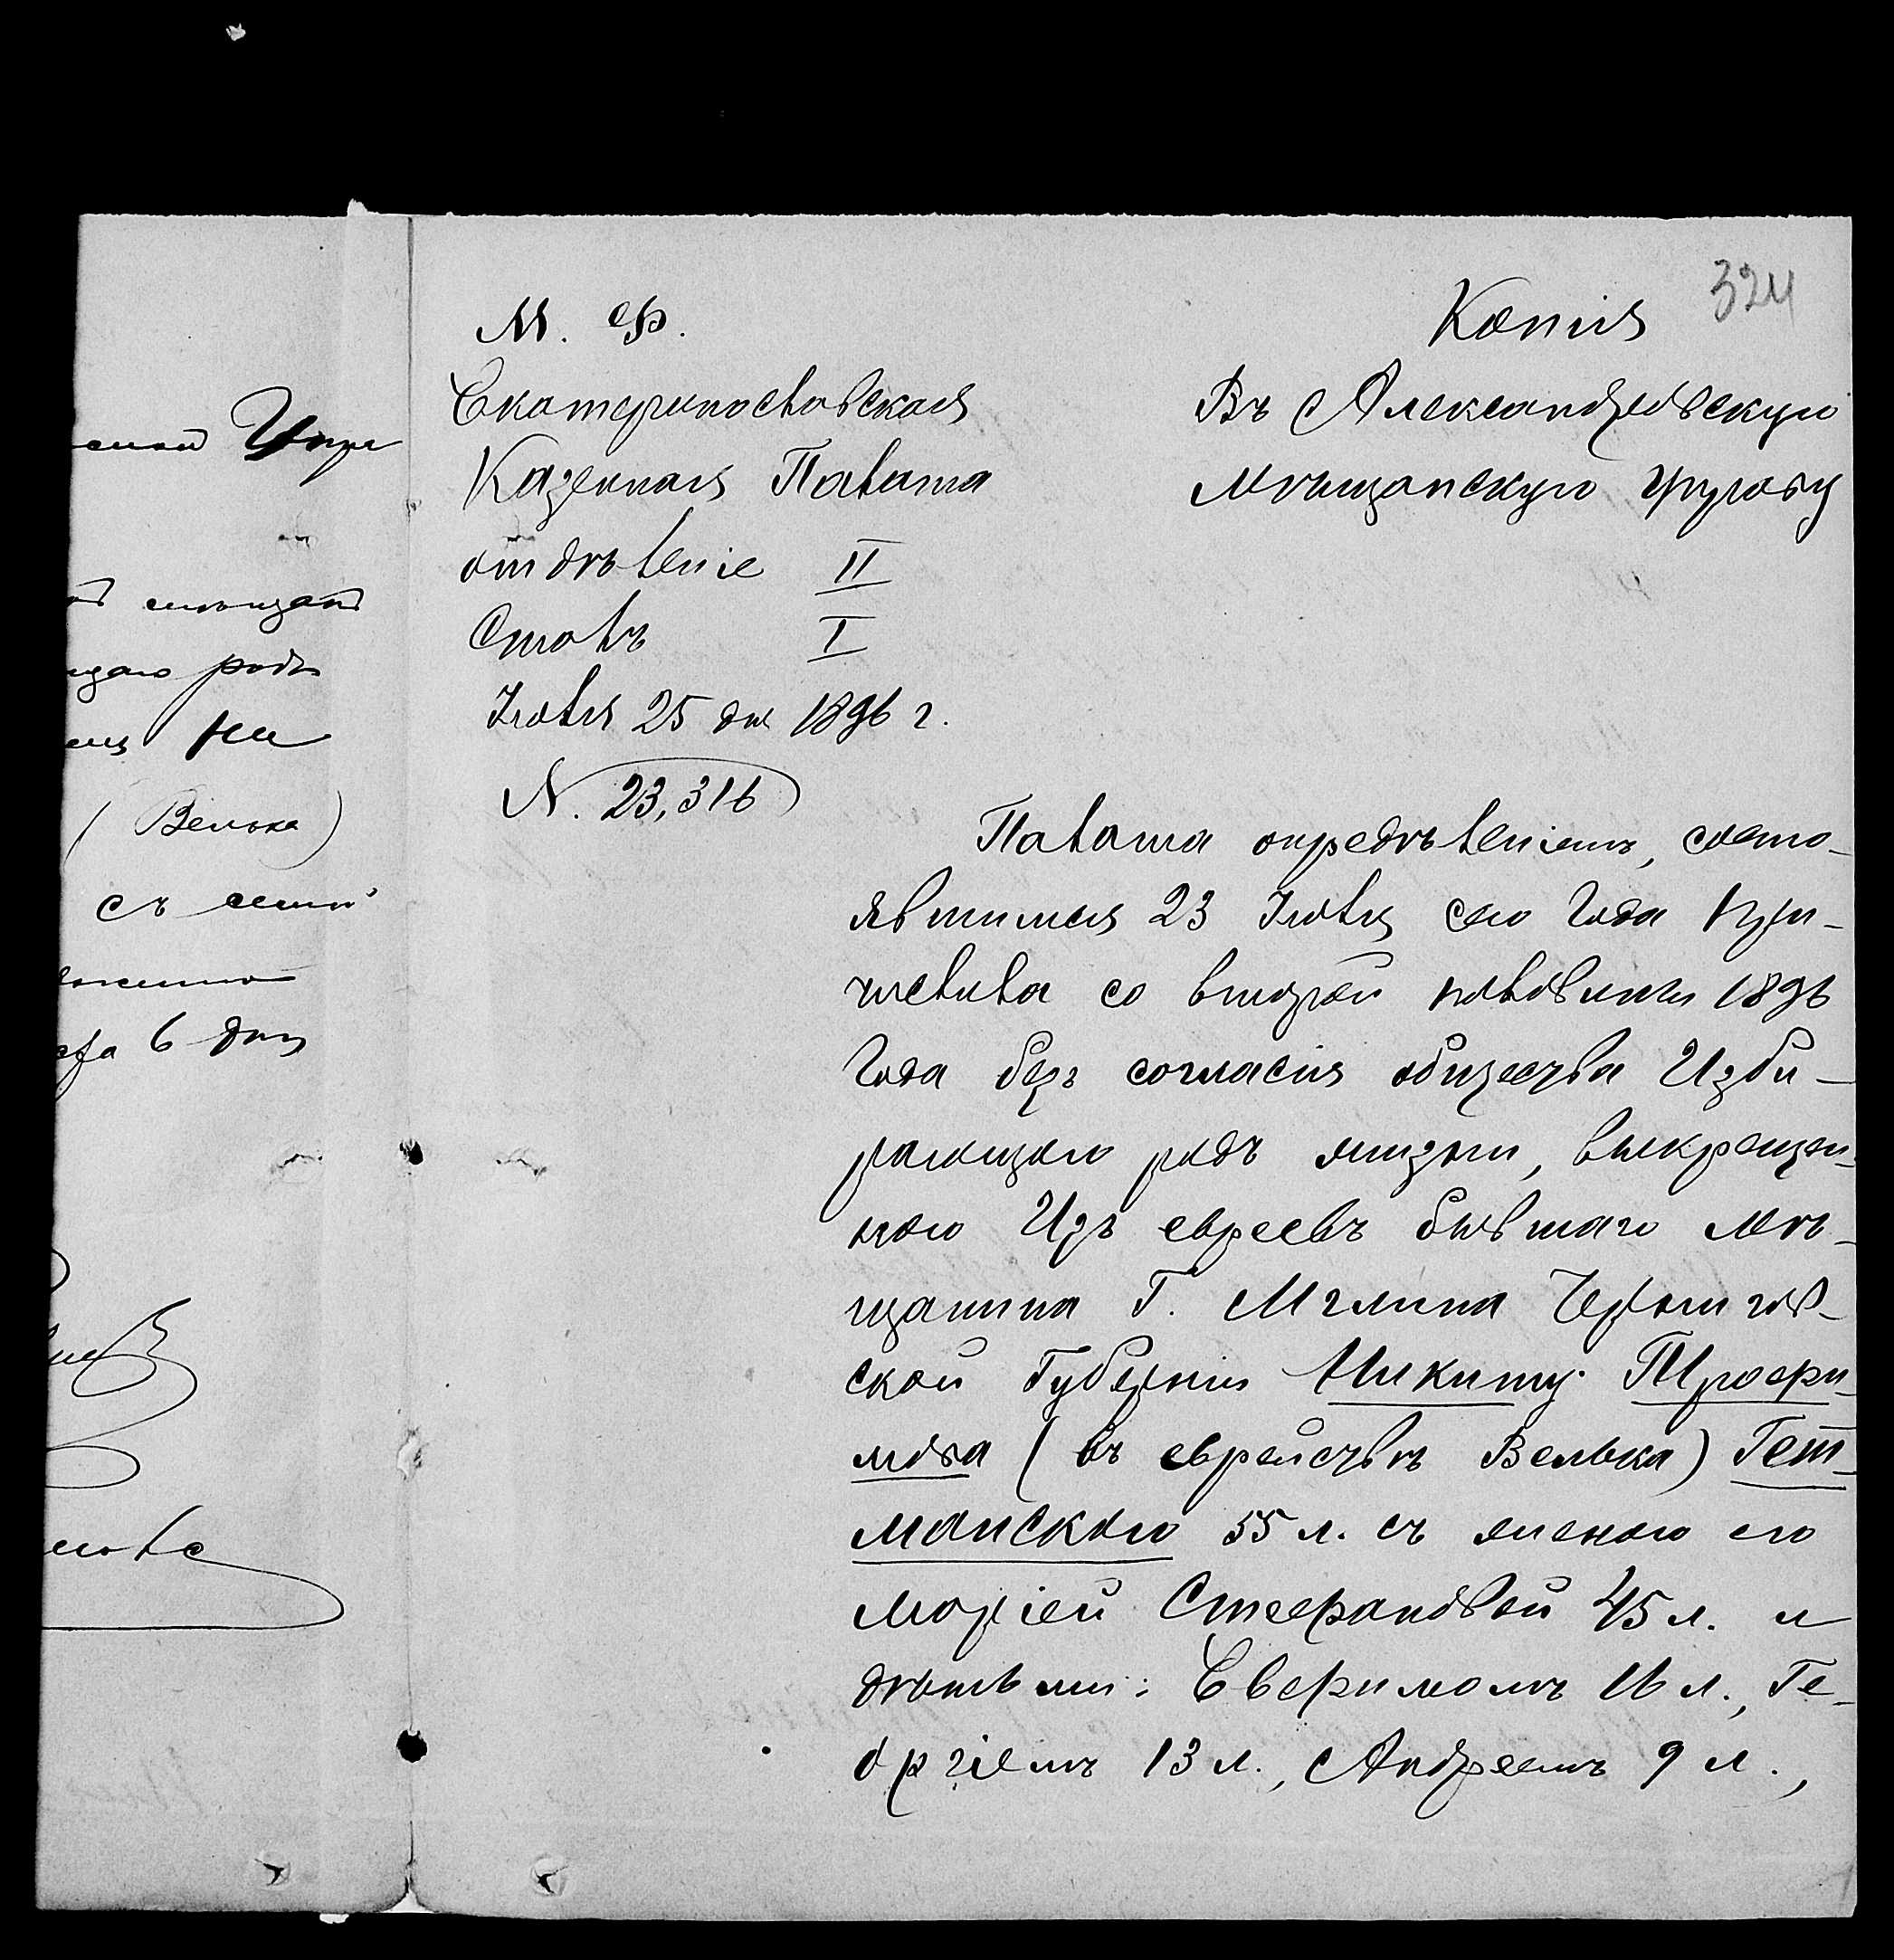 324
Копія
М. Ф.
Екатеринославская
Казенная Палата
отдѣленіе II
Столъ I
Іюля 25 дня 1896 г.
N. 23,316
Въ Александровскую
Мѣщанскую управу
Палата опредѣленіемъ, состо-
явшимся 23 Іюля сего Года при-
числила со второй половины 1896
Года безъ согласія общества Изби-
рающаго родъ жизни, выкрещен-
наго Изъ евреевъ бывшаго мѣ-
щанина Г. Мглина Чернигов-
ской Губерніи Никиту Трофи-
мова (въ еврействѣ Велька) Гет-
манскаго 55 л. съ женою его
Маріей Стефановой 45 л. и
дѣтьми: Евфимомъ 16 л., Ге-
оргіемъ 13 л., Андреемъ 9 л.,
родъ
(Велька)
съ
6 дня